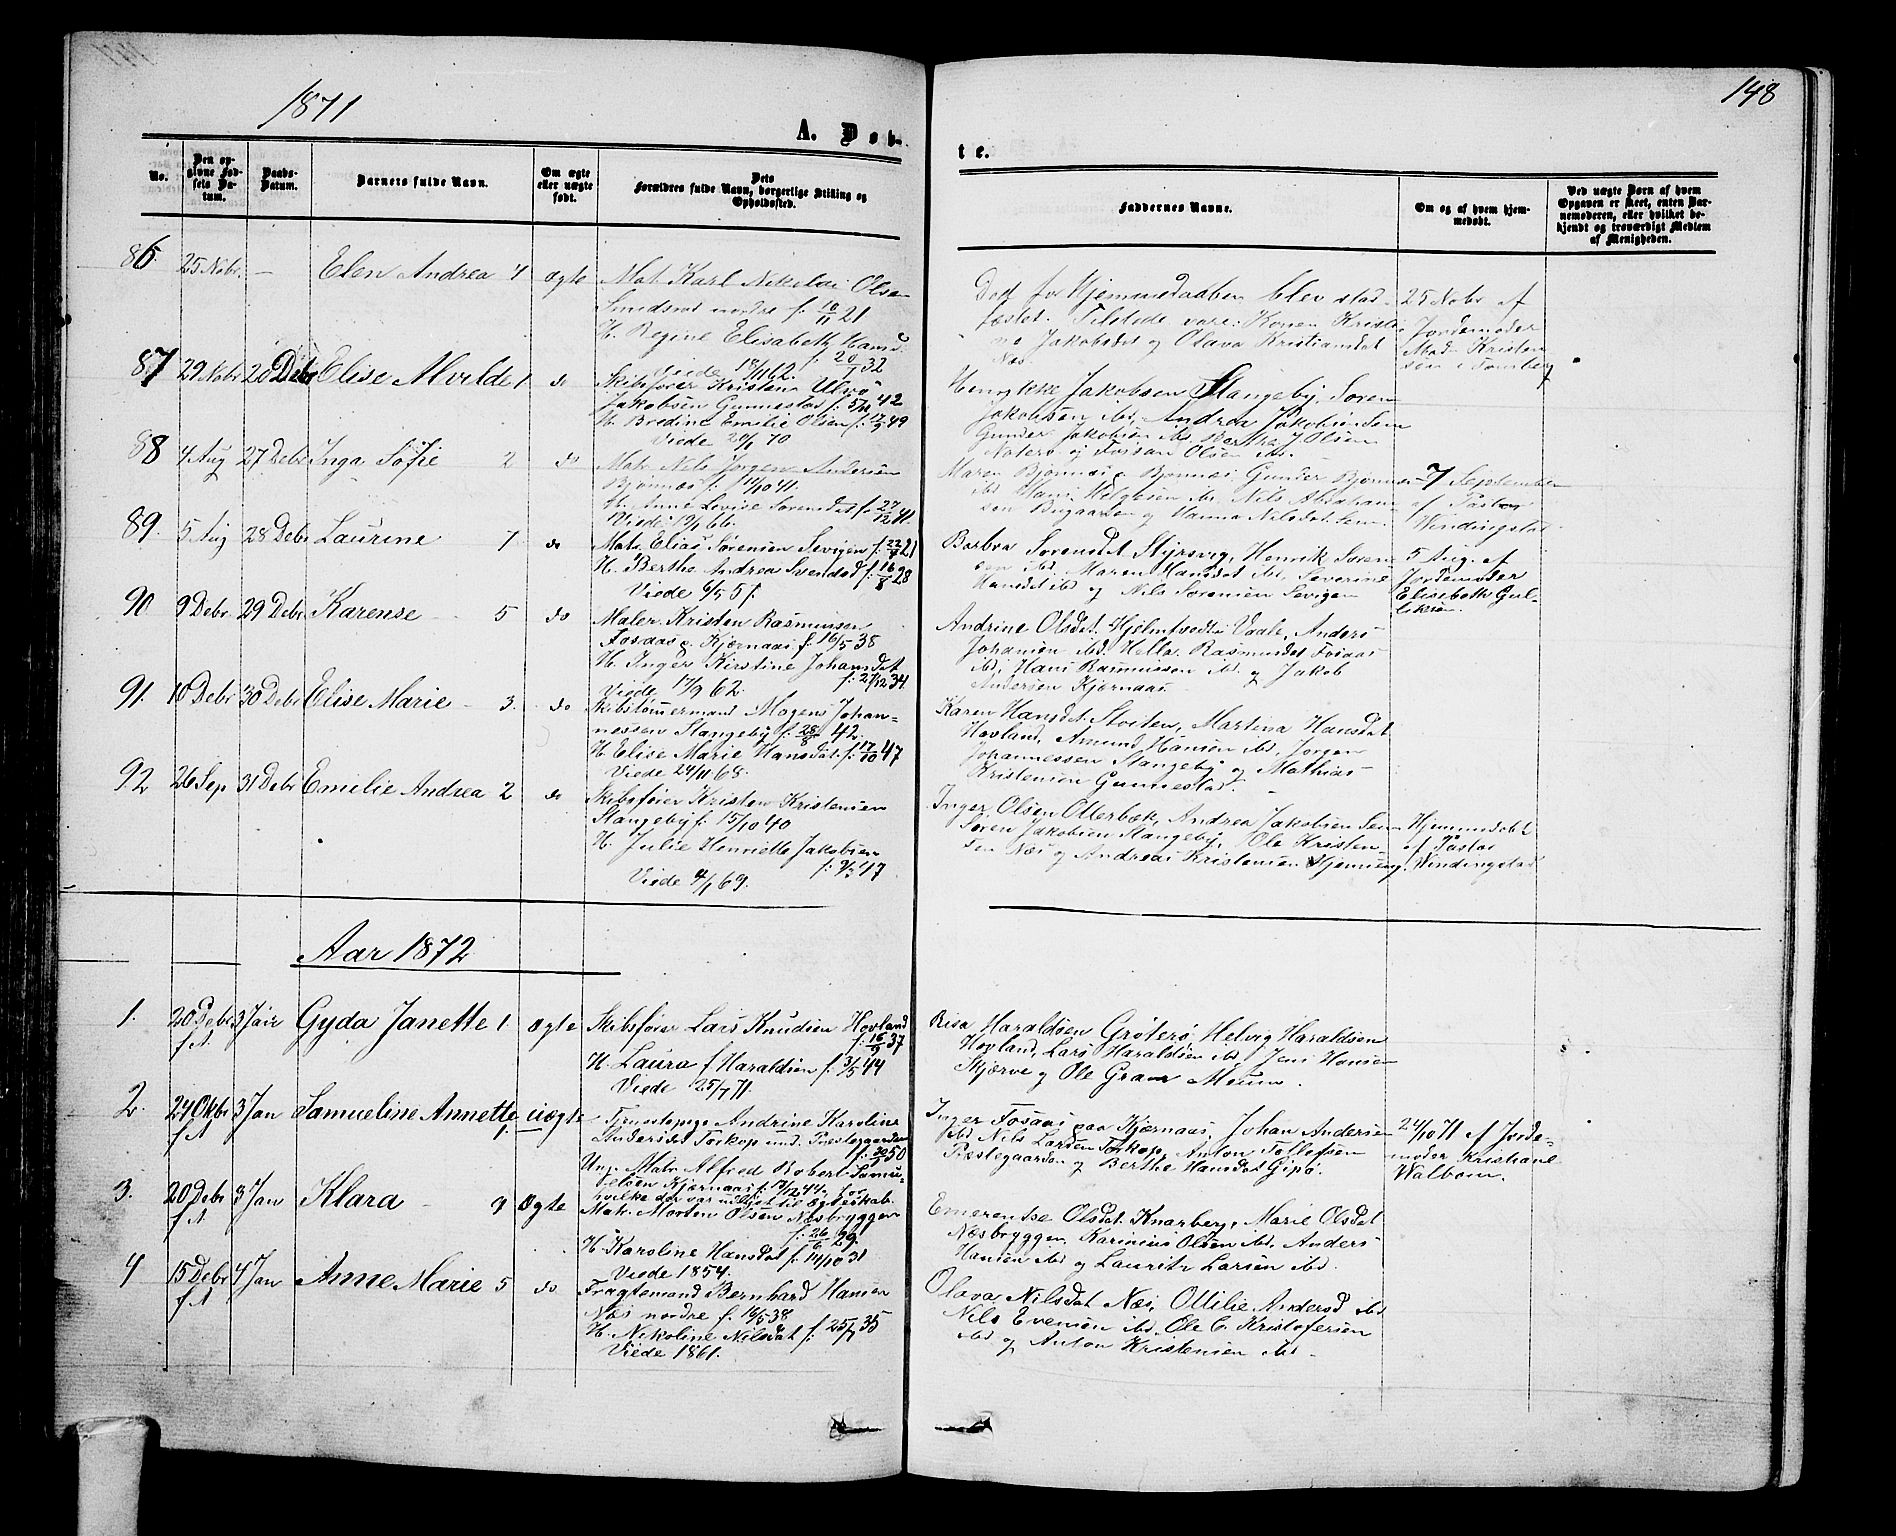 1871
148
A. Døb-
te.
No.
Den op-
givne Fød-
sels Da-
tum.
Daabs-
Datum.
Barnets fulde Navn.
Om ægte
eller uægte
født.
Dets
Forældres fulde Navn, borgerlige Stilling og
Opholdssted.
Faddernes Navne.
Om og af hvem hjem-
medøbt.
Ved uægte Børn af hvem
Opgaven er skeet, enten Bar-
nemoderen, eller hvilket be-
kjendt og troværdigt Medlem
af Menigheden.
86. 25 Nobr. — Elen Andrea 4 ægte
Mat. Karl Nikolai Olsen
Smidsrød nordre f. 10/11 21
H. Regine Elisabeth Hansd.
f. 20/1 32
Viede 18/11 62.
Død før Hjemmedaaben blev stad-
fæstet. Tilstede vare: Konen Kristi-
ne Jakobsdat og Olava Kristiansdat
Næs.
25 Nobr af
Jordemoder
Mad. Kristen-
sen i Tønsberg
87 29 Nobr 26 Debr Elise Alvilde 1 do
Skibsfører Kristen Ulvø
Jakobsen Gunnestad f. 5/11 42
H. Bredine Emilie Olsen f. 17/9 49
Viede 20/1 70
Henrikke Jakobsen Stangeby, Søren
Jakobsen ibd. Andrea Jakobsen Sem
Gunder Jakobsen ibd, Bertha J. Olsen
Nøterø og Tovsan Olsen ibd.
88 4 Aug 27 Debr Inga Sofie 2 do
Matr. Nels Jørgen Andersen
Bjønnes f. 11/10 41.
H. Anne Lovise Sørensdat f. 27/12 41.
Viede 19/1 66.
Maren Bjønnes, Bjønnes Gunder Bjønnes
ibd Hans Helgesen ibd. Nils Abraham-
sen Bugaarden og Hanna Nilsdat Sem.
7 September
af Pastor
Windingstad
89. 5 Aug 28 Debr Laurine 7 do
Matr. Elias Sørensen Sevigen f. 22/7 21
H. Berthe Andrea Svendsd f. 16/8 28
Viede 6/5 51.
Barbra Sørensdt Styrsvig, Henrik Søren-
sen ibd. Maren Hansdat ibd, Severine
Hansdat ibd og Nils Sørensen Sevigen
5 Aug. af
Jordemoder
Elisabeth Gul-
liksen.
90 9 Debr 29 Debr Karense 5 do
Maler Kristen Rasmussen
Fosaas p. Kjærnaas f. 16/5 38
H. Inger Kirstine Johansdat
f. 27/12 34.
Viede 17/9 62.
Andrine Olsdat. Hjelmtvedt i Vaale, Anders
Johansen ibd. Hella Rasmusdat Fosaas
ibd, Hans Rasmussen ibd. og Jakob
Andersen Kjærnaas
91. 10 Debr 30 Debr Elise Marie 3. do
Skibstømmermand Mogens Johan-
nessen Stangeby f. 28/8 42.
H. Elise Marie Hansdat. f. 17/10 47
Viede 24/11 68.
Karen Hansdat. Stoten, Martina Hansdat
Hovland, Amund Hansen ibd, Jørgen
Johannessen Stangeby og Mathias
Kristensen Gunnestad.
92 26 Sep 31 Debr Emilie Andrea 2 do
Skibsfører Kristen Kristensen
Stangeby f. 15/10 40
H. Julie Henriette Jakobsen
f. 9/3 47
Viede 4/1 69.
Inger Olsen Otterbæk, Andrea Jakobsen Sem
Søren Jakobsen Stangeby, Ole Kristen-
sen Næs og Andreas Kristensen Hjemseng.
Hjemmedøbt
af Pastor
Windingstad
Aar 1872
1. 20 Debr f.A. 3 Jan Gyda Janette 1. Ægte
Skibsfører Lars Knudsen Hovland
f. 16/9 37
H. Laura f. Haraldsen f. 31/5 44
Viede 25/7 71.
Risa Haraldsen Grøterø, Helvig Haraldsen
Hovland, Lars Haraldsen ibd Jens Hansen
Skjærve og Ole Gran Meum.
2. 24 Okbr f.A. 3 Jan Samueline Annette 1. uægte
Tjenestepige Andrine Karoline
Andersdat Torkop und. Præstegaarden
f. 30/1 50
Ung. Matr Alfred Robert Samu-
elsen Kjærnaas f. 17/12 44, for
hvilke der var udlyst til Ægteskab.
Inger Fosaas paa Kjærnaas, Johan Andersen
ibd Nils Larsen Torkop, Anton Tollefsen
Præstegaarden og Berthe Hansdat Gipø.
24/10 71 af Jorde-
moder Kristiane
Walbom.
3. 20 Debr f.A. 3 Jan Klara 9 Ægte
Matr. Morten Olsen Næsbryggen
f. 26/6 29.
H. Karoline Hansdat f. 14/10 31
Viede 1854.
Emerentse Olsdat. Knarberg, Marie Olsdat
Næsbryggen, Karinius Olsen ibd, Anders
Hansen ibd og Lauritz Larsen ibd.
4 15 Debr f.A. 4 Jan Anne Marie 5 do
Fragtemand Bernhard Hansen
Næs nordre f. 16/5 38
H. Nikoline Nilsdat f. 25/7 35
Viede 1861.
Olava Nilsdat Næs, Ottilie Andersd ibd
Nils Evensen ibd, Ole C. Kristofersen
ibd og Anton Kristensen ibd.